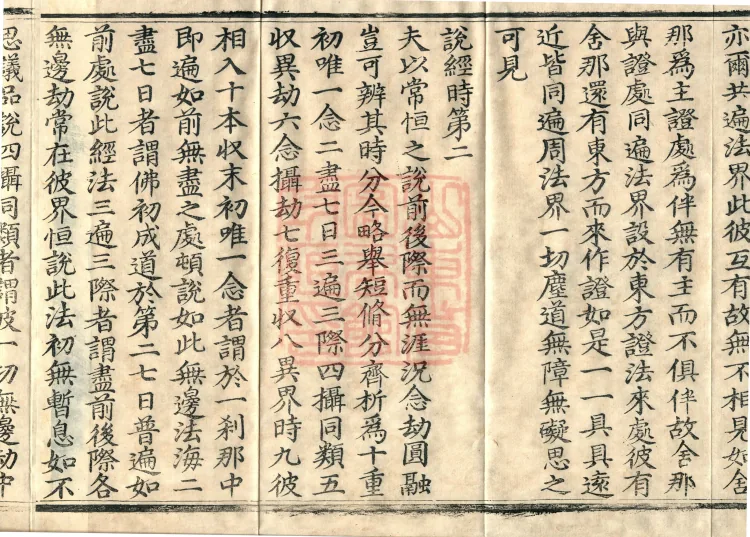 亦爾共遍法界此彼互有故無不相見如舍
那爲主證處爲伴無有主而不俱伴故舍那
與證處同遍法界設於東方證法來處彼有
舍那還有東方而來作證如是一一具具遠
近皆同遍周法界一切塵道無障無礙思之
可見
說經時第二
夫以常恒之說前後際而無涯況念劫圓融
豈可辨其時分今略舉短脩分齊析爲十重
初唯一念二盡七日三遍三際四攝同類五
収異劫六念攝劫七復重収八異界時九彼
相入十本収末初唯一念者謂於一刹那中
即遍如前無盡之處頓說如此無邊法海二
盡七日者謂佛初成道於第二七日普遍如
前處說此經法三遍三際者謂盡前後際各
無邊劫常在彼界恒說此法初無暫息如不
思議品說四攝同類者謂彼一切無邊劫中